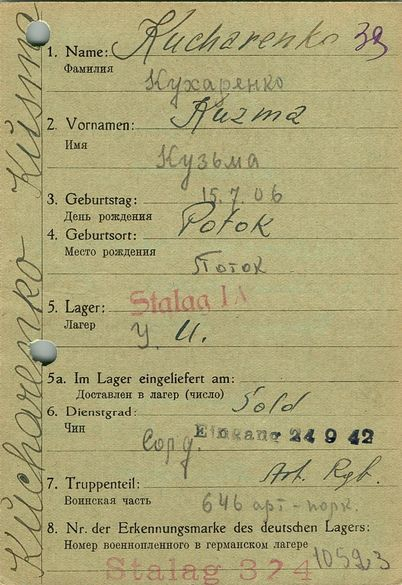 Kucharenko Kusma
1. Name: Kucharenko 39
Фамилия
Кухаренко
2. Vornamen: Kuzma
Имя
Кузьма
3. Geburtstag: 15.7.06
День рождения
4. Geburtsort: Potok
Место рождения
Поток
5. Lager: Stalag IA
Лагер
У. U.
5a. Im Lager eingeliefert am:
Доставлен в лагер (число)
6. Dienstgrad: Sold
Чин
Eingang 24 9 42
7. Truppenteil: Art. Rgt.
Воинская часть
646 арт-
8. Nr. der Erkennungsmarke des deutschen Lagers:
Номер военнопленного в германском лагере
Stalag 374